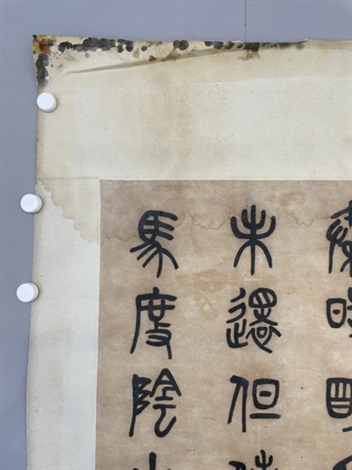 秦時明
未還但
馬度陰